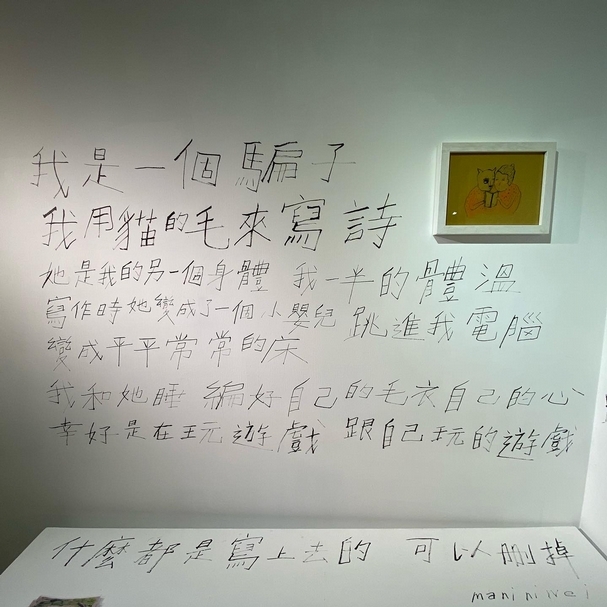 我是一個騙子
我用貓的毛來寫詩
她是我的另一個身體 我一半的體溫
寫作時她變成了一個小嬰兒 跳進我電腦
變成平平常常的床
我和她睡 編好自己的毛衣自己的心
幸好是在玩遊戲 跟自己玩的遊戲
什麼都是寫上去的 可以刪掉
maniniwei